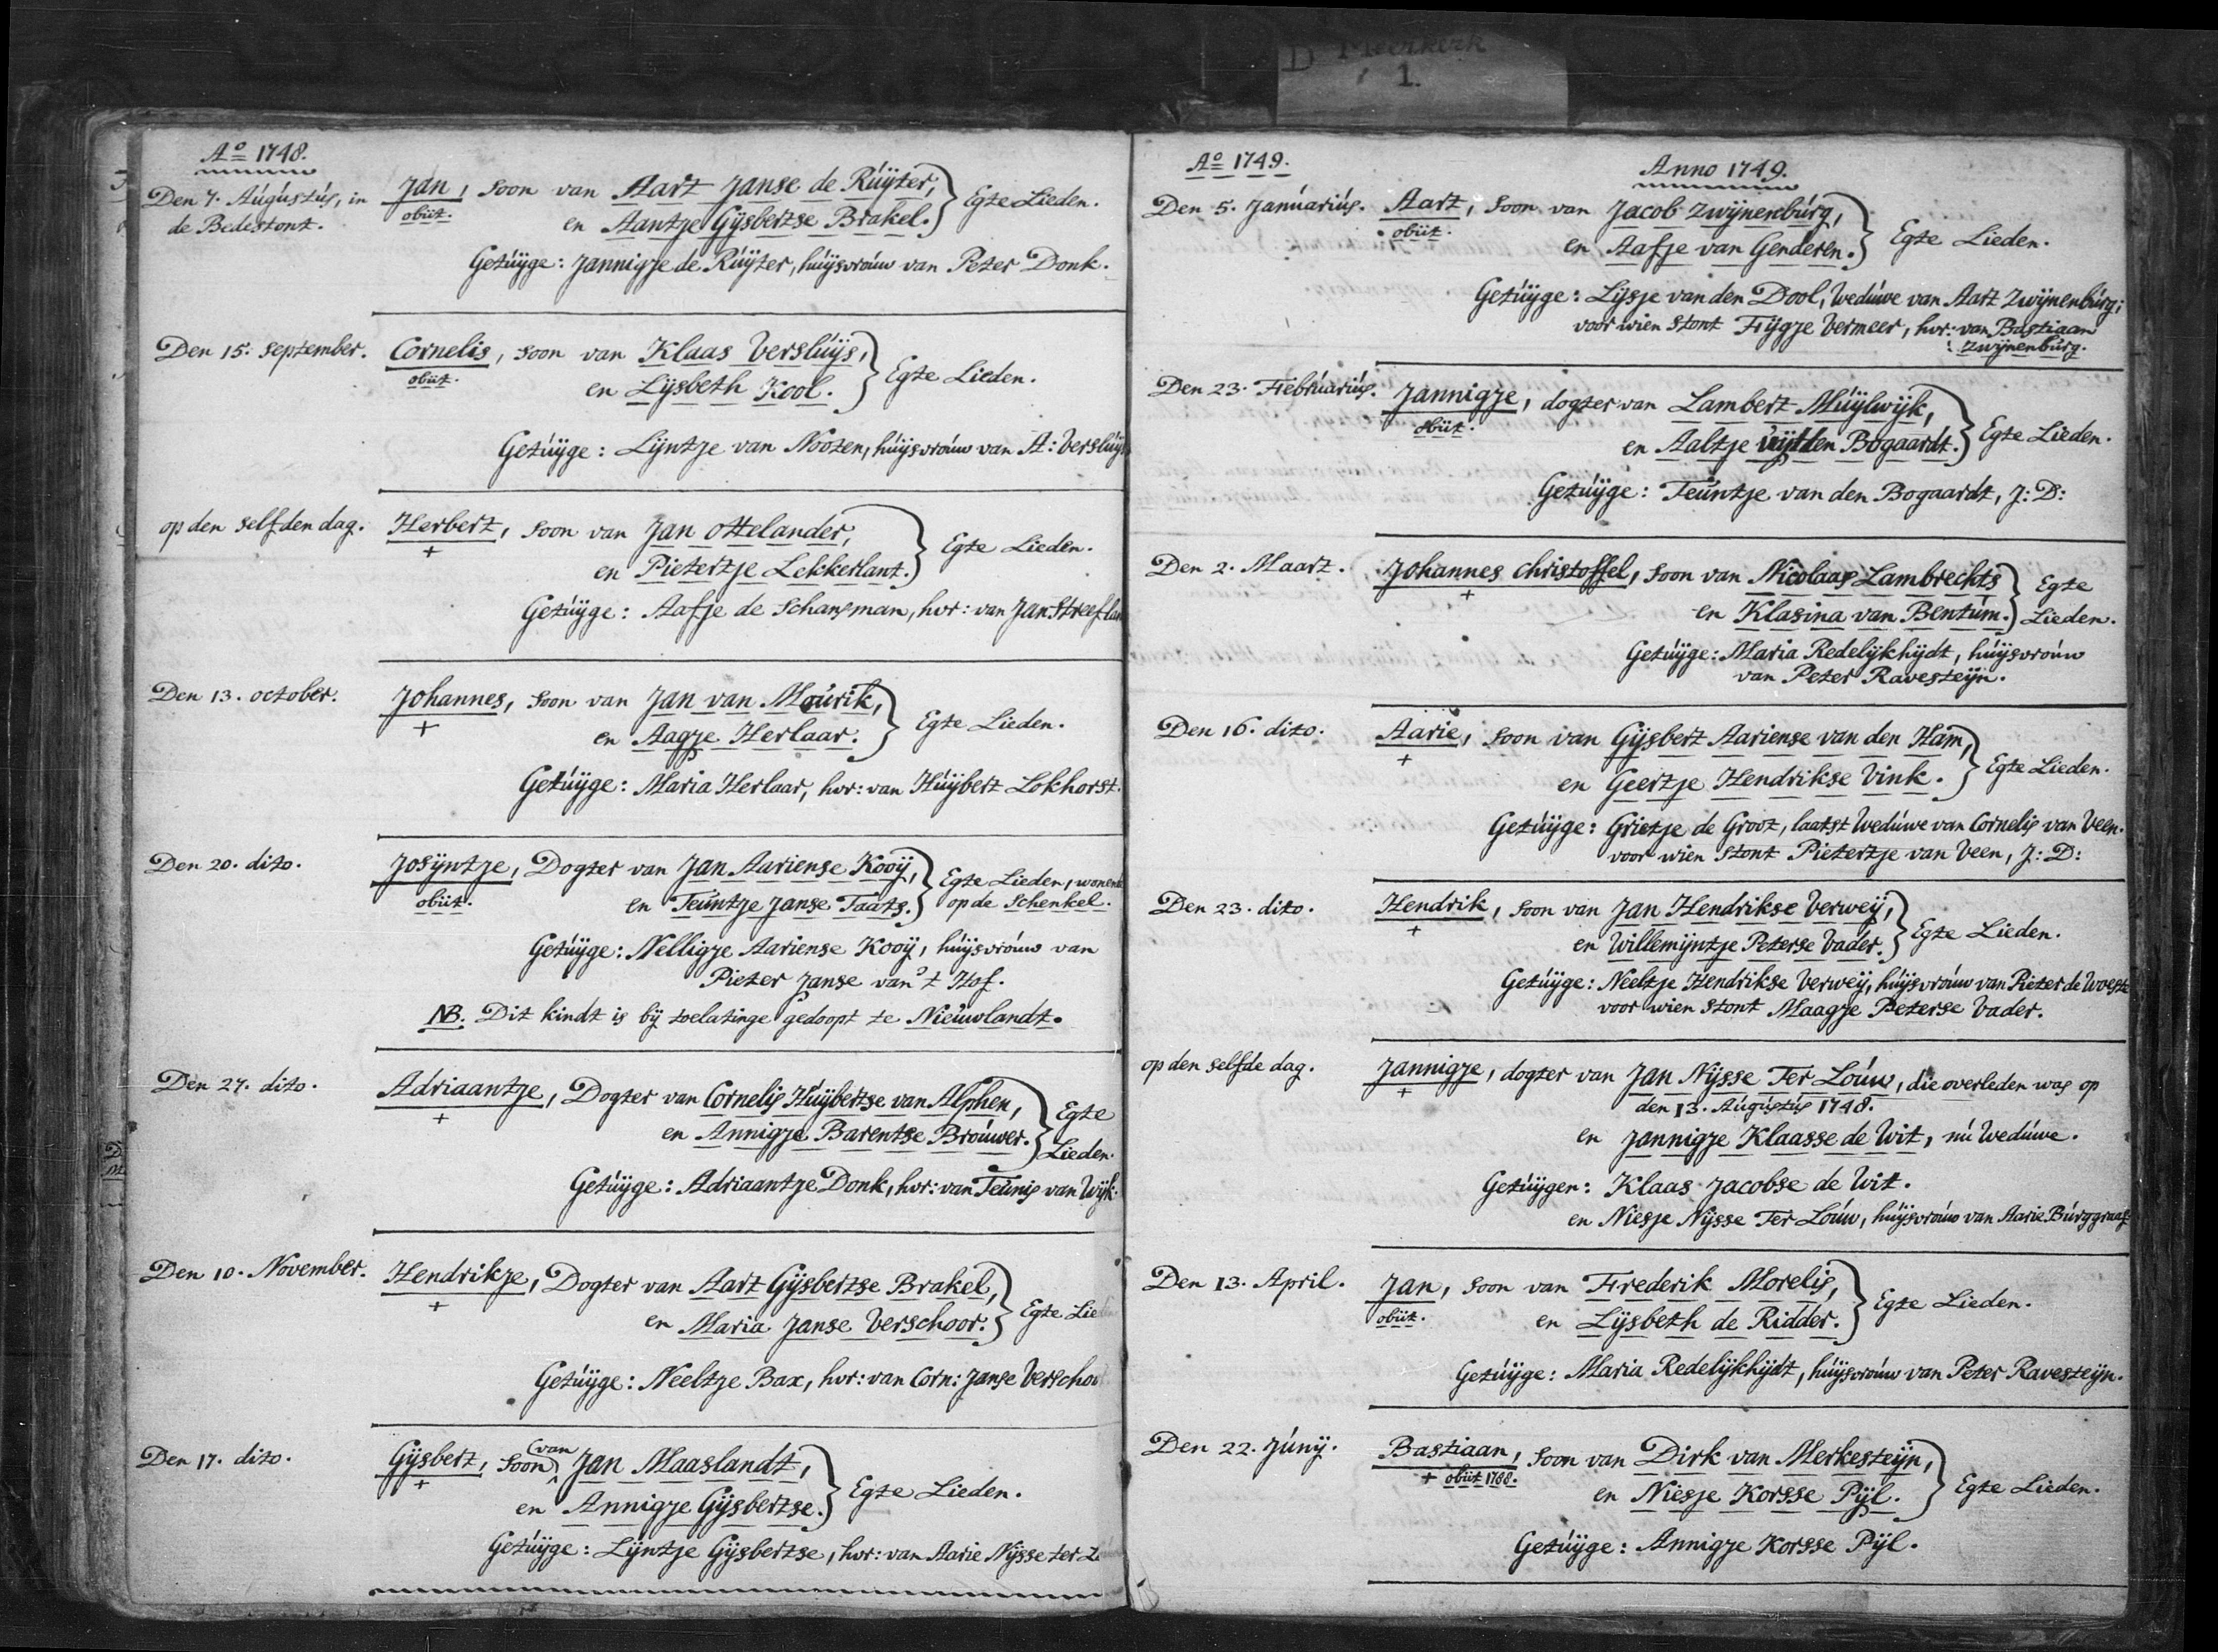 D Meerkerk
1.
Ao 1748.
Den 7. Augustus, in
de Bedestont.
Jan, soon van Aart Janse de Ruÿter,
obiit.
en Aantje Gijsbertse Brakel.
Egte Lieden.
Getuÿge: Jannigje de Ruÿter, huÿsvrouw van Peter Donk.
Den 15. September.
Cornelis, soon van Klaas Versluÿs,
obiit.
en Lijsbeth Kool.
Egte Lieden.
Getuÿge: Lijntje van Nooten, huÿsvrouw van A: Versluÿs
op den selfden dag.
Herbert, soon van Jan Ottelander,
+
en Pietertje Lekkerlant.
Egte Lieden.
Getuÿge: Aafje de Schansman, hvr: van Jan Streeflan
Den 13. October.
Johannes, soon van Jan van Maurik,
+
en Aagje Herlaar.
Egte Lieden.
Getuÿge: Maria Herlaar, hvr: van Huÿbert Lokhorst.
Den 20. dito.
Josÿntje, Dogter van Jan Aariense Kooÿ,
obiit.
en Teuntje Janse Taats.
Egte Lieden, wonende
op de Schenkel.
Getuÿge: Nelligje Aariense Kooÿ, huÿsvrouw van
Pieter Janse van 't Hof.
NB. Dit kindt is bij toelatinge gedoopt te Nieuwlandt.
Den 27. dito.
Adriaantje, Dogter van Cornelis Huÿbertse van Alphen,
+
en Annigje Barentse Brouwer.
Egte
Lieden.
Getuÿge: Adriaantje Donk, hvr: van Teunis van Wijk.
Den 10. November.
Hendrikje, Dogter van Aart Gijsbertse Brakel,
+
en Maria Janse Verschoor.
Egte Lieden
Getuÿge: Neeltje Bax, hvr: van Corn: Janse Verschoo
Den 17. dito.
Gijsbert, soon van Jan Maaslandt,
+
en Annigje Gijsbertse.
Egte Lieden.
Getuÿge: Lijntje Gijsbertse, hvr: van Aarie Nijsse ter L
Ao 1749.
Anno 1749.
Den 5. Januarius.
Aart, soon van Jacob Zwijnenburg,
obiit.
en Aafje van Genderen.
Egte Lieden.
Getuÿge: Lijsje van den Dool, Weduwe van Aart Zwijnenburg;
voor wien stont Fijgje Vermeer, hvr: van Bastiaan
Zwijnenburg.
Den 23. Februarius.
Jannigje, dogter van Lambert Muÿlwijk,
obiit.
en Aaltje uÿtden Bogaardt.
Egte Lieden.
Getuÿge: Teuntje van den Bogaardt, J: D:
Den 2. Maart.
Johannes Christoffel, soon van Nicolaas Lambrechts
+
en Klasina van Bentum.
Egte
Lieden.
Getuÿge: Maria Redelijkhijdt, huÿsvrouw
van Peter Ravesteijn.
Den 16. dito.
Aarie, soon van Gijsbert Aariense van den Ham,
+
en Geertje Hendrikse Vink.
Egte Lieden.
Getuÿge: Grietje de Groot, laatst Weduwe van Cornelis van Veen.
voor wien stont Pietertje van Veen, J: D:
Den 23. dito.
Hendrik, soon van Jan Hendrikse Verweij,
+
en Willemijntje Peterse Vader.
Egte Lieden.
Getuÿge: Neeltje Hendrikse Verweij, huÿsvrouw van Pieter de Woest
voor wien stont Maagje Peterse Vader.
op den selfde dag.
Jannigje, dogter van Jan Nijsse Ter Louw, die overleden was op
+
den 13. Augustus 1748.
en Jannigje Klaasse de Wit, nu Weduwe.
Getuÿgen: Klaas Jacobse de Wit.
en Niesje Nijsse Ter Louw, huÿsvrouw van Aarie Burggraaf
Den 13. April.
Jan, soon van Frederik Morelis,
obiit.
en Lijsbeth de Ridder.
Egte Lieden.
Getuÿge: Maria Redelijkhijdt, huÿsvrouw van Peter Ravesteijn.
Den 22. Junij.
Bastiaan, soon van Dirk van Merkesteijn,
+ obiit 1788.
en Niesje Korsse Pijl.
Egte Lieden.
Getuÿge: Annigje Korsse Pijl.